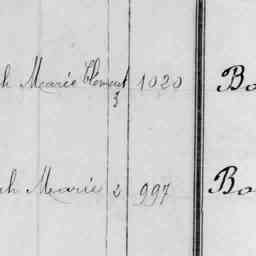 h Marie Clément 3 1020 Bo
h Marie 2 997 Bo